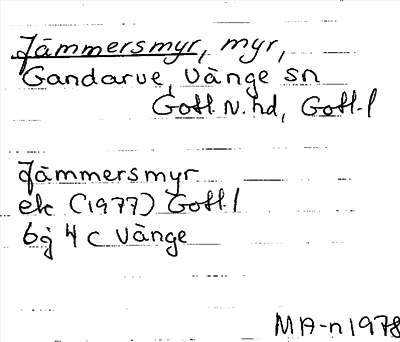 Jämmersmyr, myr,
Gandarve, Vänge sn
Gotl. N. hd, Gotl. l
Jämmersmyr
ek (1977) Gotl. l
6j 4 c Vänge
MA-n 1978